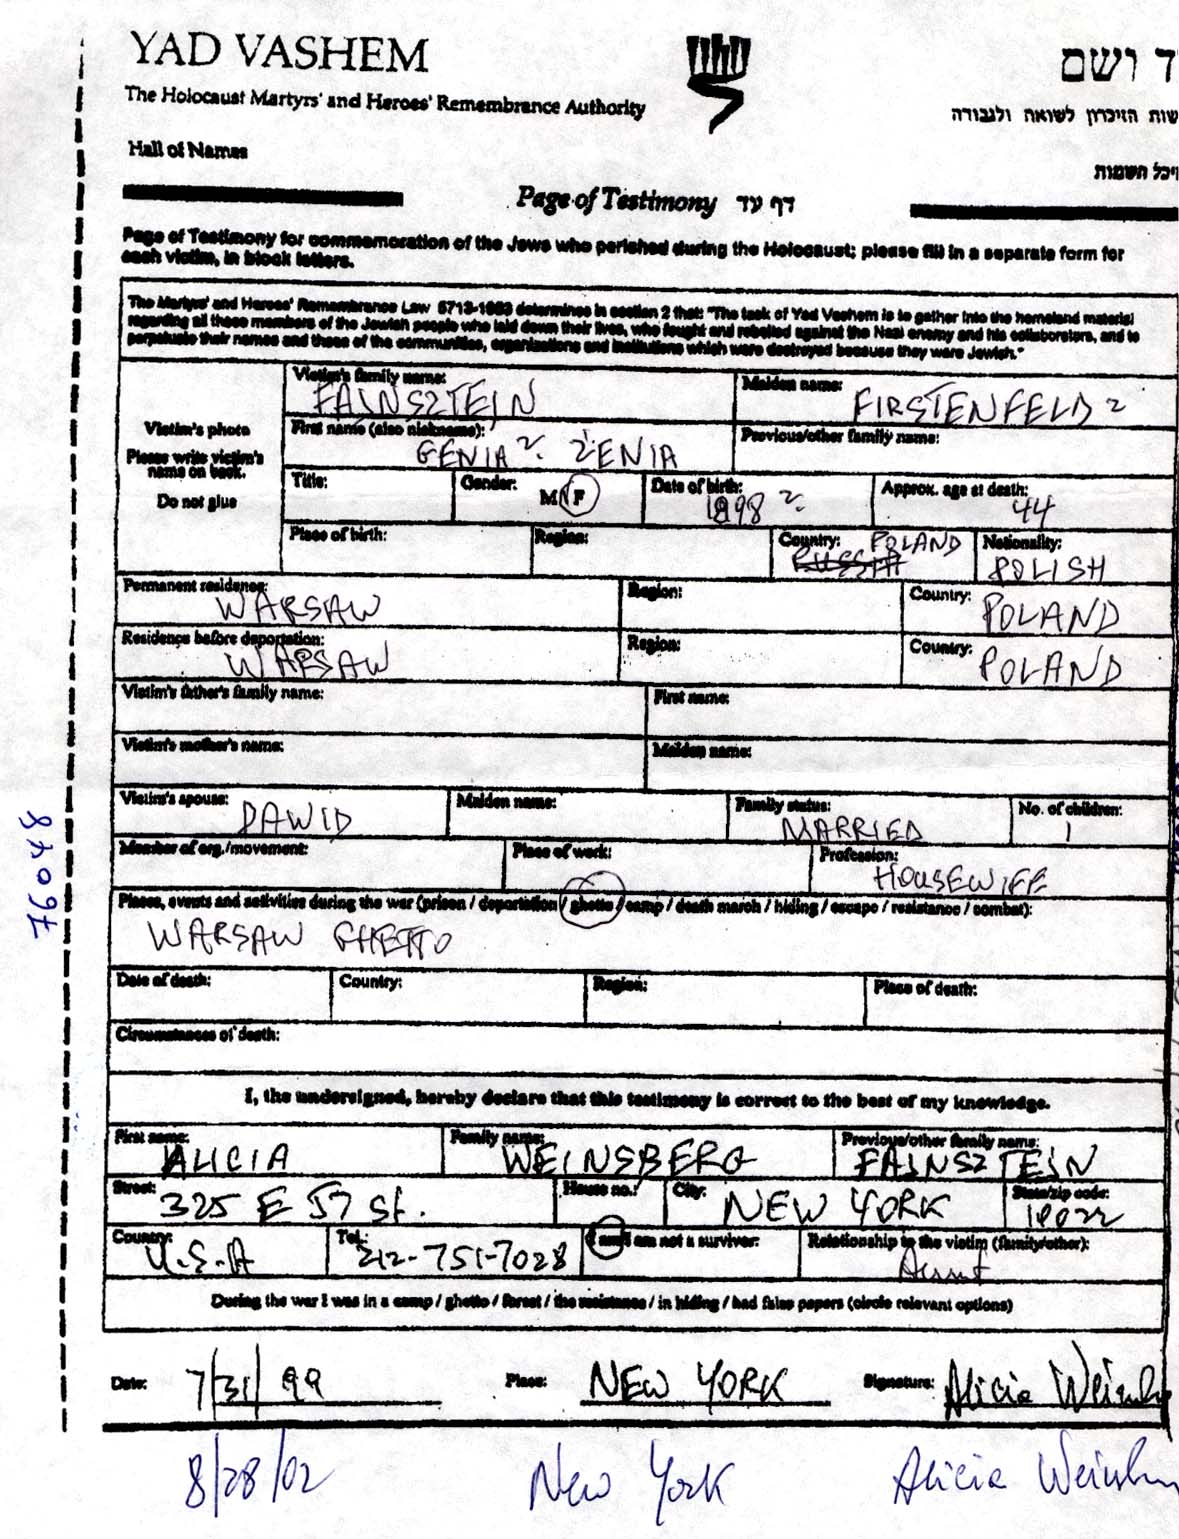 YAD VASHEM
ד ושם
The Holocaust Martyrs' and Heroes' Remembrance Authority
שות הזיכרון לשואה ולגבורה
Hall of Names
יכל השמות
Page of Testimony דף עד
Page of Testimony for commemoration of the Jews who perished during the Holocaust; please fill in a separate form for
each victim, in block letters.
The Martyrs' and Heroes' Remembrance Law 5713-1953 determines in section 2 that: "The task of Yad Vashem is to gather into the homeland material
regarding all those members of the Jewish people who laid down their lives, who fought and rebelled against the Nazi enemy and his collaborators, and to
perpetuate their names and those of the communities, organizations and institutions which were destroyed because they were Jewish."
Victim's photo
Please write victim's
name on back.
Do not glue
Victim's family name: FAJNSZTEJN
Maiden name: FIRSTENFELD ?
First name (also nickname): GENIA ?. ŻENIA
Previous/other family name:
Title:
Gender: M/F
Date of birth: 1898 ?
Approx. age at death: 44
Place of birth:
Region:
Country: RUSSIA POLAND
Nationality: POLISH
Permanent residence: WARSAW
Region:
Country: POLAND
Residence before deportation: WARSAW
Region:
Country: POLAND
Victim's father's family name:
First name:
Victim's mother's name:
Maiden name:
Victim's spouse: DAWID
Maiden name:
Family status: MARRIED
No. of children: 1
Member of org./movement:
Place of work:
Profession: HOUSEWIFE
Places, events and activities during the war (prison / deportation / ghetto / camp / death march / hiding / escape / resistance / combat):
WARSAW GHETTO
Date of death:
Country:
Region:
Place of death:
Circumstances of death:
I, the undersigned, hereby declare that this testimony is correct to the best of my knowledge.
First name: ALICIA
Family name: WEINSBERG
Previous/other family name: FAJNSZTEJN
Street: 325 E 57 St.
House no.:
City: NEW YORK
State/zip code: 10022
Country: U.S.A
Tel.: 212-751-7028
I am/I am not a survivor:
Relationship to the victim (family/other): Aunt
During the war I was in a camp / ghetto / forest / the resistance / in hiding / had false papers (circle relevant options)
Date: 7/31/99
Place: NEW YORK
Signature: Alicia
8/28/02
New York
Alicia
76048